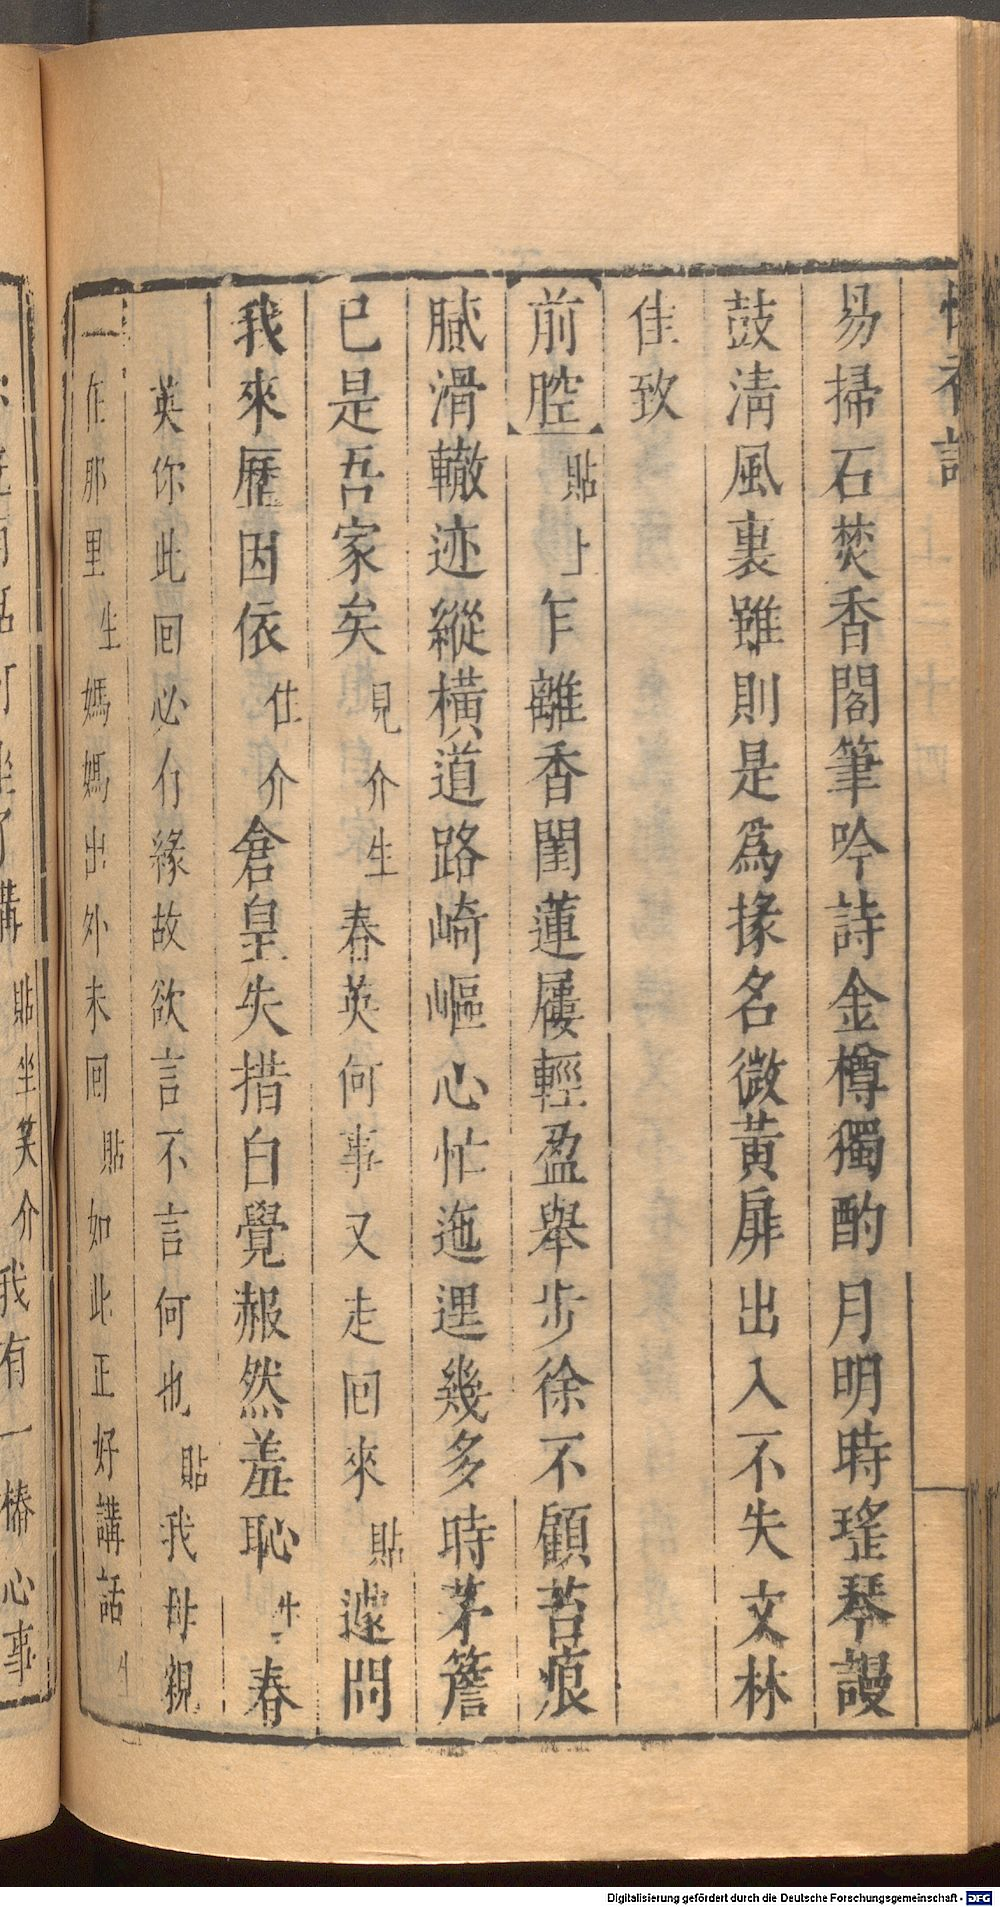 易掃石焚香閣筆吟詩金樽獨酌月明時瑤琴謾
鼓清風裏雖則是爲掾名微黃扉出入不失文林
佳致
【前腔】貼上乍離香閨蓮屨輕盈舉步徐不顧苔痕
膩滑轍迹縱橫道路崎嶇心忙迤逕幾多時茅簷
已是吾家矣見介生春英何事又走回來貼遽問
我來歷因依住介倉皇失措自覺赧然羞恥生春
英你此回必有緣故欲言不言何也貼我母親
在那里生媽媽出外未回貼如此正好講話生
貼坐笑介我有一樁心事
Digitalisierung gefördert durch die Deutsche Forschungsgemeinschaft - DFG